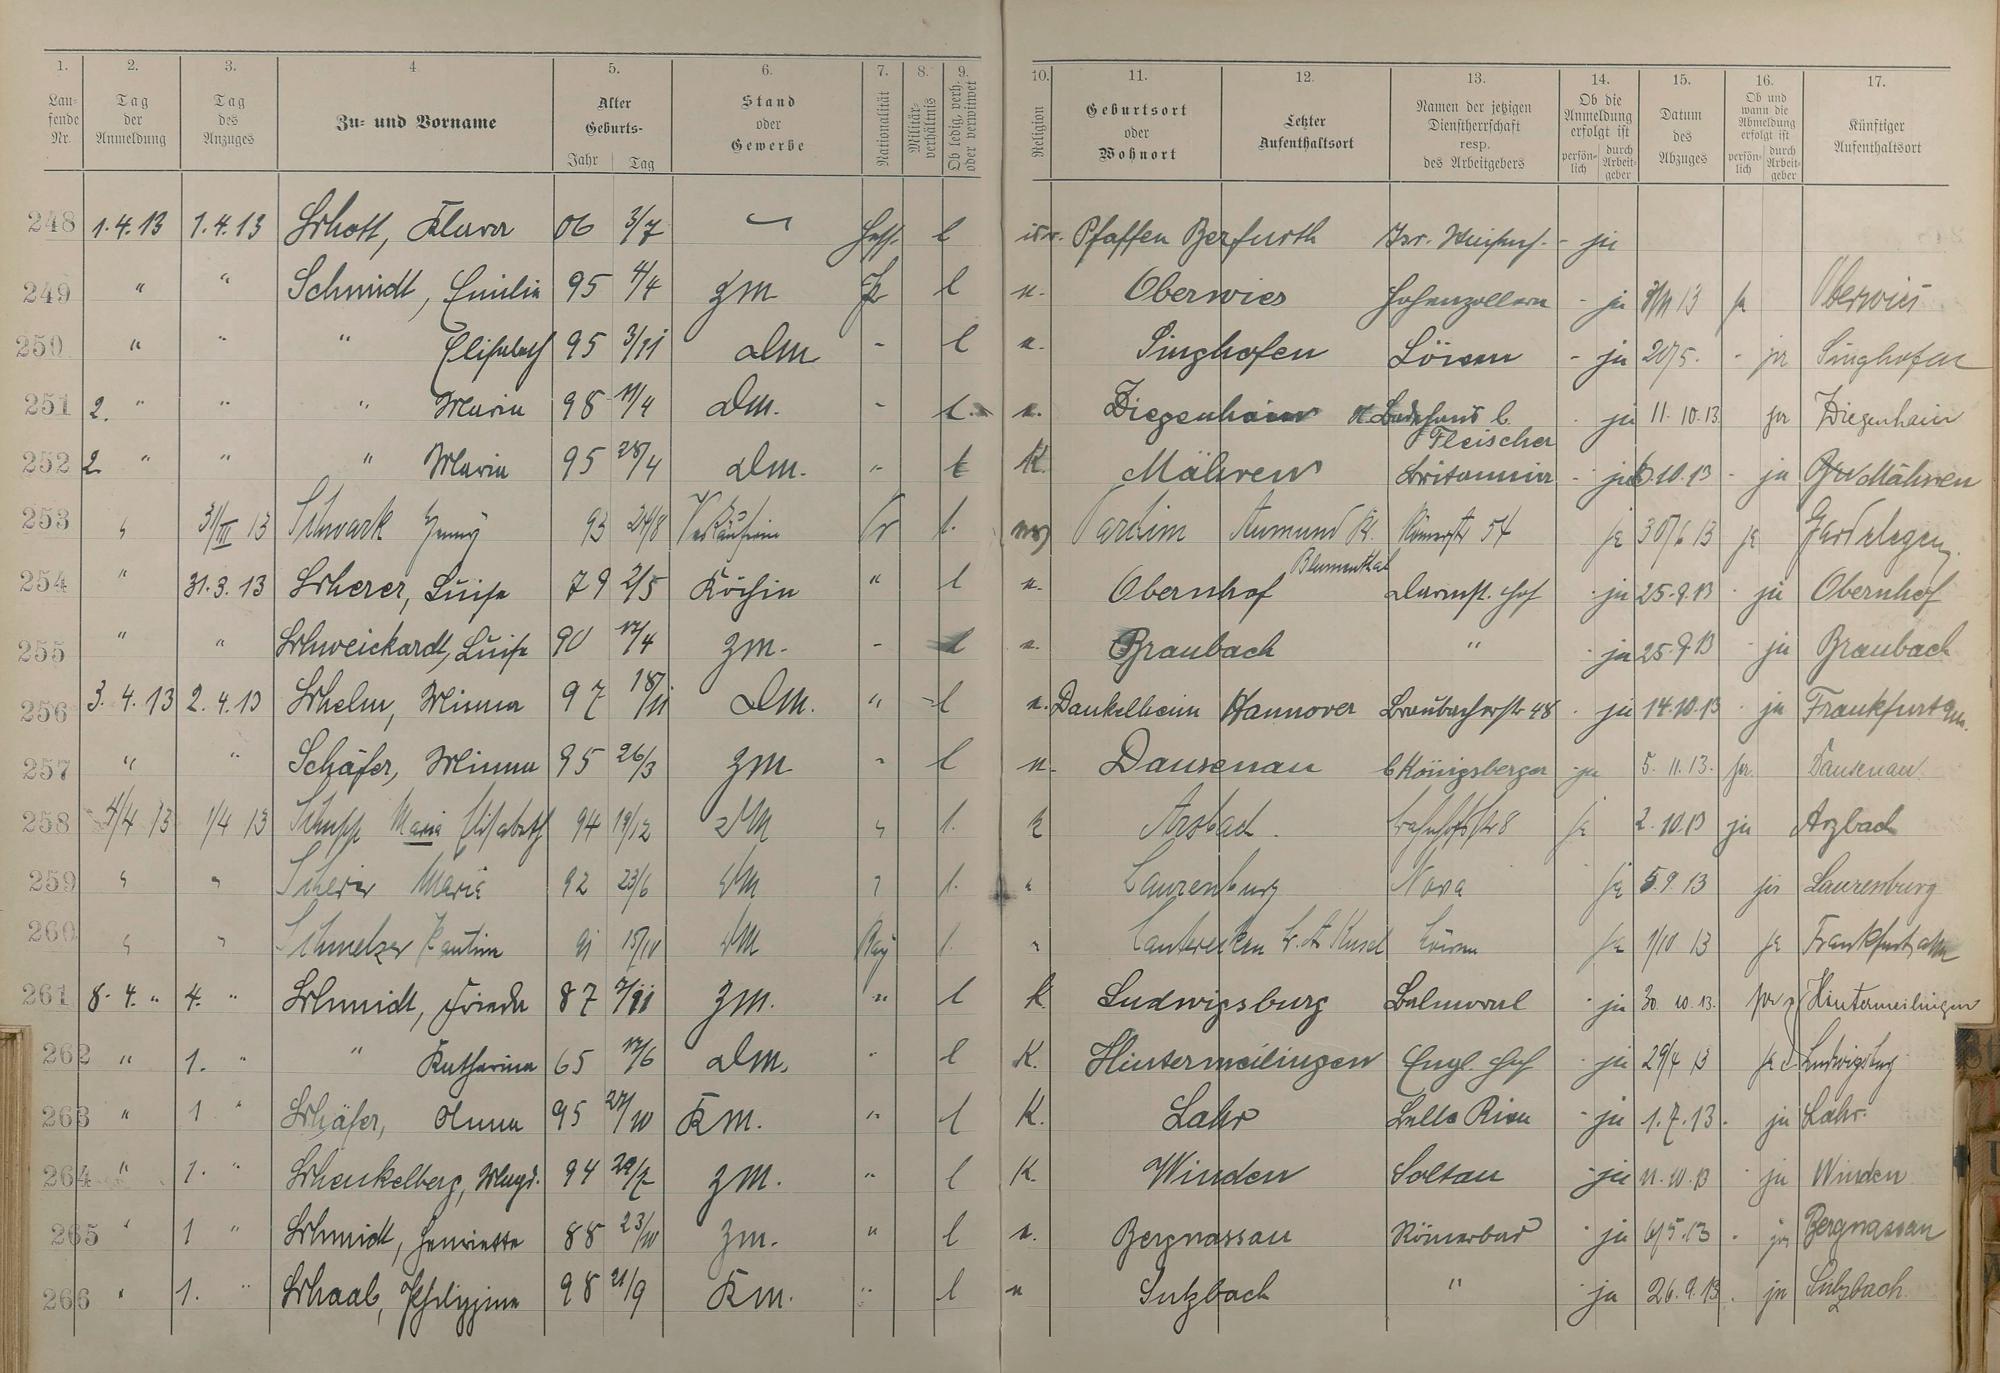 1. 2. 3. 4 5. 6. 7. 8. 9. 10. 11. 12. 13. 14. 15. 16. 17.
Lau- fende Nr. Tag der Anmeldung Tag des Anzuges Zu- und Vorname Alter Geburts- Jahr Tag Stand oder Gewerbe Nationalität Militär- verhältnis Ob ledig, verh. oder verwitwet Religion Geburtsort oder Wohnort Letzter Aufenthaltsort Namen der jetzigen Dienstherrschaft resp. des Arbeitgebers Ob die Anmeldung erfolgt ist persön- lich durch Arbeit- geber Datum des Abzuges Ob und wann die Abmeldung erfolgt ist persön- lich durch Arbeit- geber Künftiger Aufenthaltsort
248 1.4.13 1.4.13 Schott, Klara 06 3/7 Hess. l isr. Pfaffen Beerfurth Isr. - ja
249 " " Schmidt, Emilie 95 4/4 Zm l e. Oberwies Hohenzollern - ja 13 ja Oberwies
250 " " " Elisabeth 95 3/11 Dm - l e. Singhofen Löwen - ja 20/5. - ja Singhofen
251 2. " " " Maria 98 11/4 Dm. - l. e. Ziegenhain Badehaus b. Fleischer ja 11.10.13 ja Ziegenhain
252 2. " " " Maria 95 28/4 Dm. " l K. Mähren Britannia - ja 10.13 - ja Mähren
253 " 31/III 13 Schwark Jenny 93 24/8 Verkäuferin Pr l. Parchim Aumund Kr. Blumenthal Römerstr 54 ja 30/6 13 ja Gardelegen
254 " 31.3.13 Scherer, Luise 79 2/5 Köchin " l e. Obernhof Darmst. Hof - ja 25.9.13 - ja Obernhof
255 " " Schweickardt, Luise 90 17/4 Zm. - l e. Braubach " - ja 25.9.13 - ja Braubach
256 3.4.13 2.4.13 Schelm, Minna 97 18/11 Dm. " l e. Dankelheim Hannover Braubacherstr 48 - ja 14.10.13 - ja Frankfurt a/m.
257 " " Schäfer, Minna 95 26/3 Zm - l e. Dausenau b Königsberger ja 5.11.13. ja. Dausenau.
258 4/4 13 1/4 13 Schupp Maria Elisabeth 94 19/12 DM " l. k Arzbach. Bahnhofstr 8 ja 2.10.13 ja Arzbach
259 " " Scherer Maria 92 23/6 DM " l. " Laurenburg Nova ja 5.9.13 ja Laurenburg
260 " " Schmelzer Pauline 91 15/10 DM Bay l. " Lauterecken B.A. Kusel Löwen ja 1/10 13 ja Frankfurt a/M
261 8.4. " 4. " Schmidt, Frieda 87 7/11 Zm. " l K. Ludwigsburg Balmoral - ja 30.10.13. ja Hintermeilingen
262 " 1. " " Katharina 65 17/6 Dm. " l K. Hintermeilingen Engl. Hof - ja 29/4 13 ja Ludwigsburg
263 " 1 " Schäfer, Anna 95 27/10 Km. " l K. Lahr Bella Riva - ja 1.7.13. ja Lahr.
264 " 1. " Schenkelberg, Magd. 94 29/7 Zm. " l K. Winden Soltau - ja 11.10.13 - ja Winden
265 " 1 " Schmidt, Henriette 88 23/10 Zm. " l e. Bergnassau Römerbad - ja 6/5.13 - ja Bergnassau
266 " 1. " Schaab, Philippine 98 21/9 Km. " l e Sulzbach " - ja 26.9.13. ja Sulzbach.